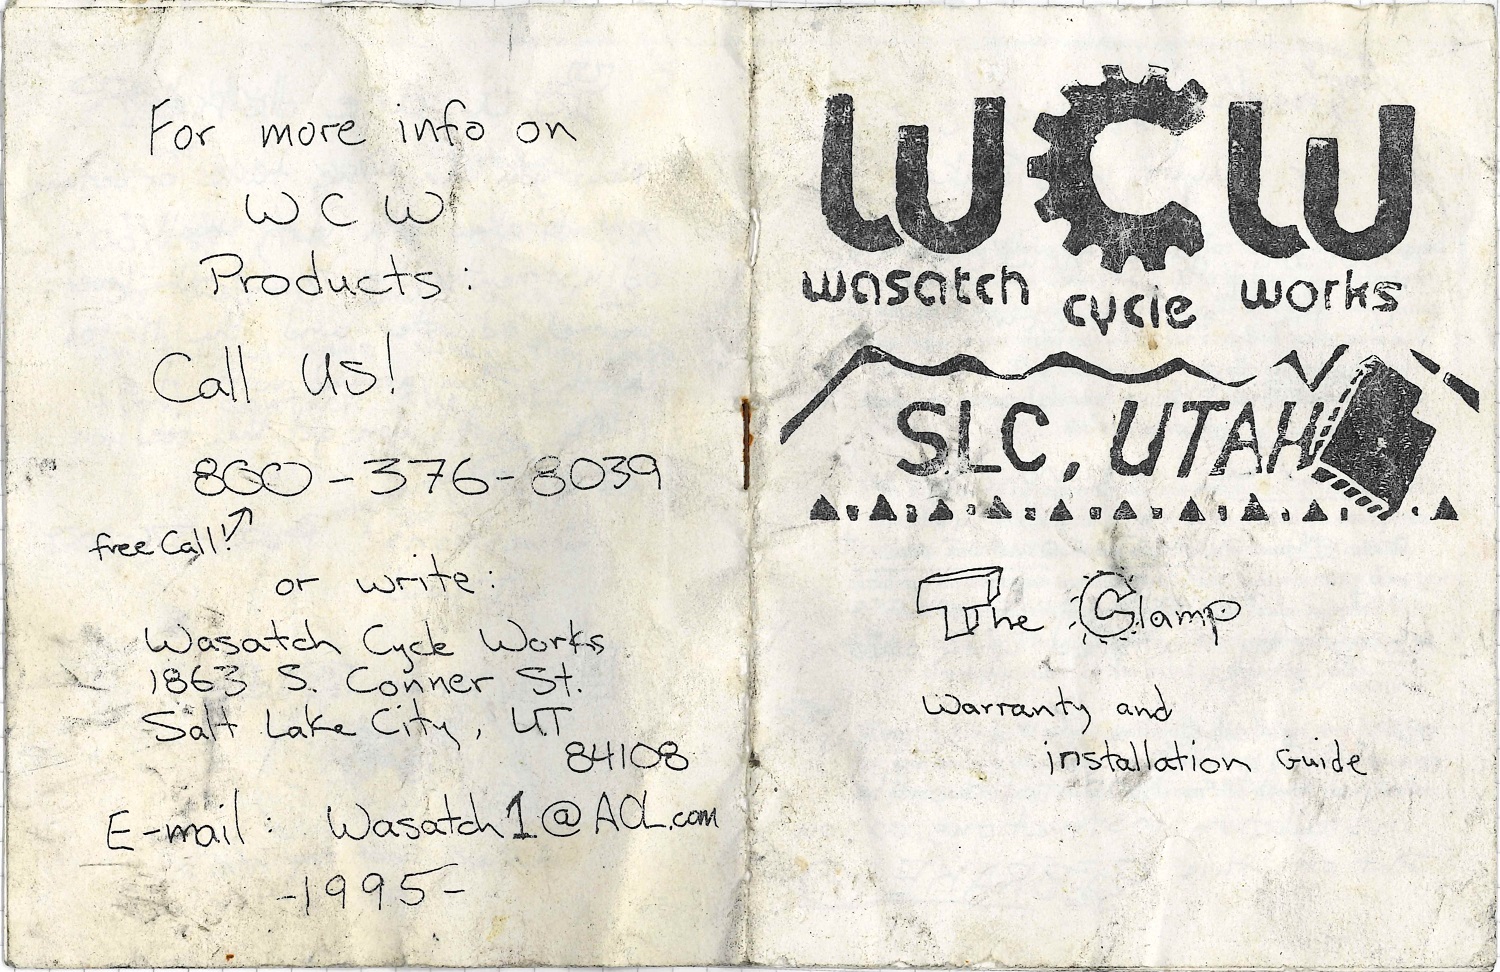 For more info on
WCW
Products:
Call Us!
800-376-8039
free Call!
or write:
Wasatch Cycle Works
1863 S. Conner St.
Salt Lake City, UT
84108
E-mail: Wasatch1@AOL.com
-1995-
WCW
wasatch cycle works
SLC, UTAH
The Clamp
Warranty and
installation Guide